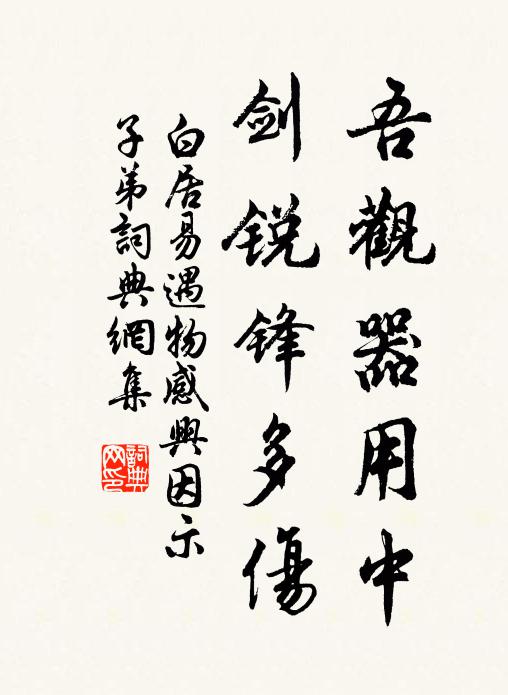 吾觀器用中
剑锐锋多傷
白居易遇物感興因示
子弟詞典網集
詞典网印